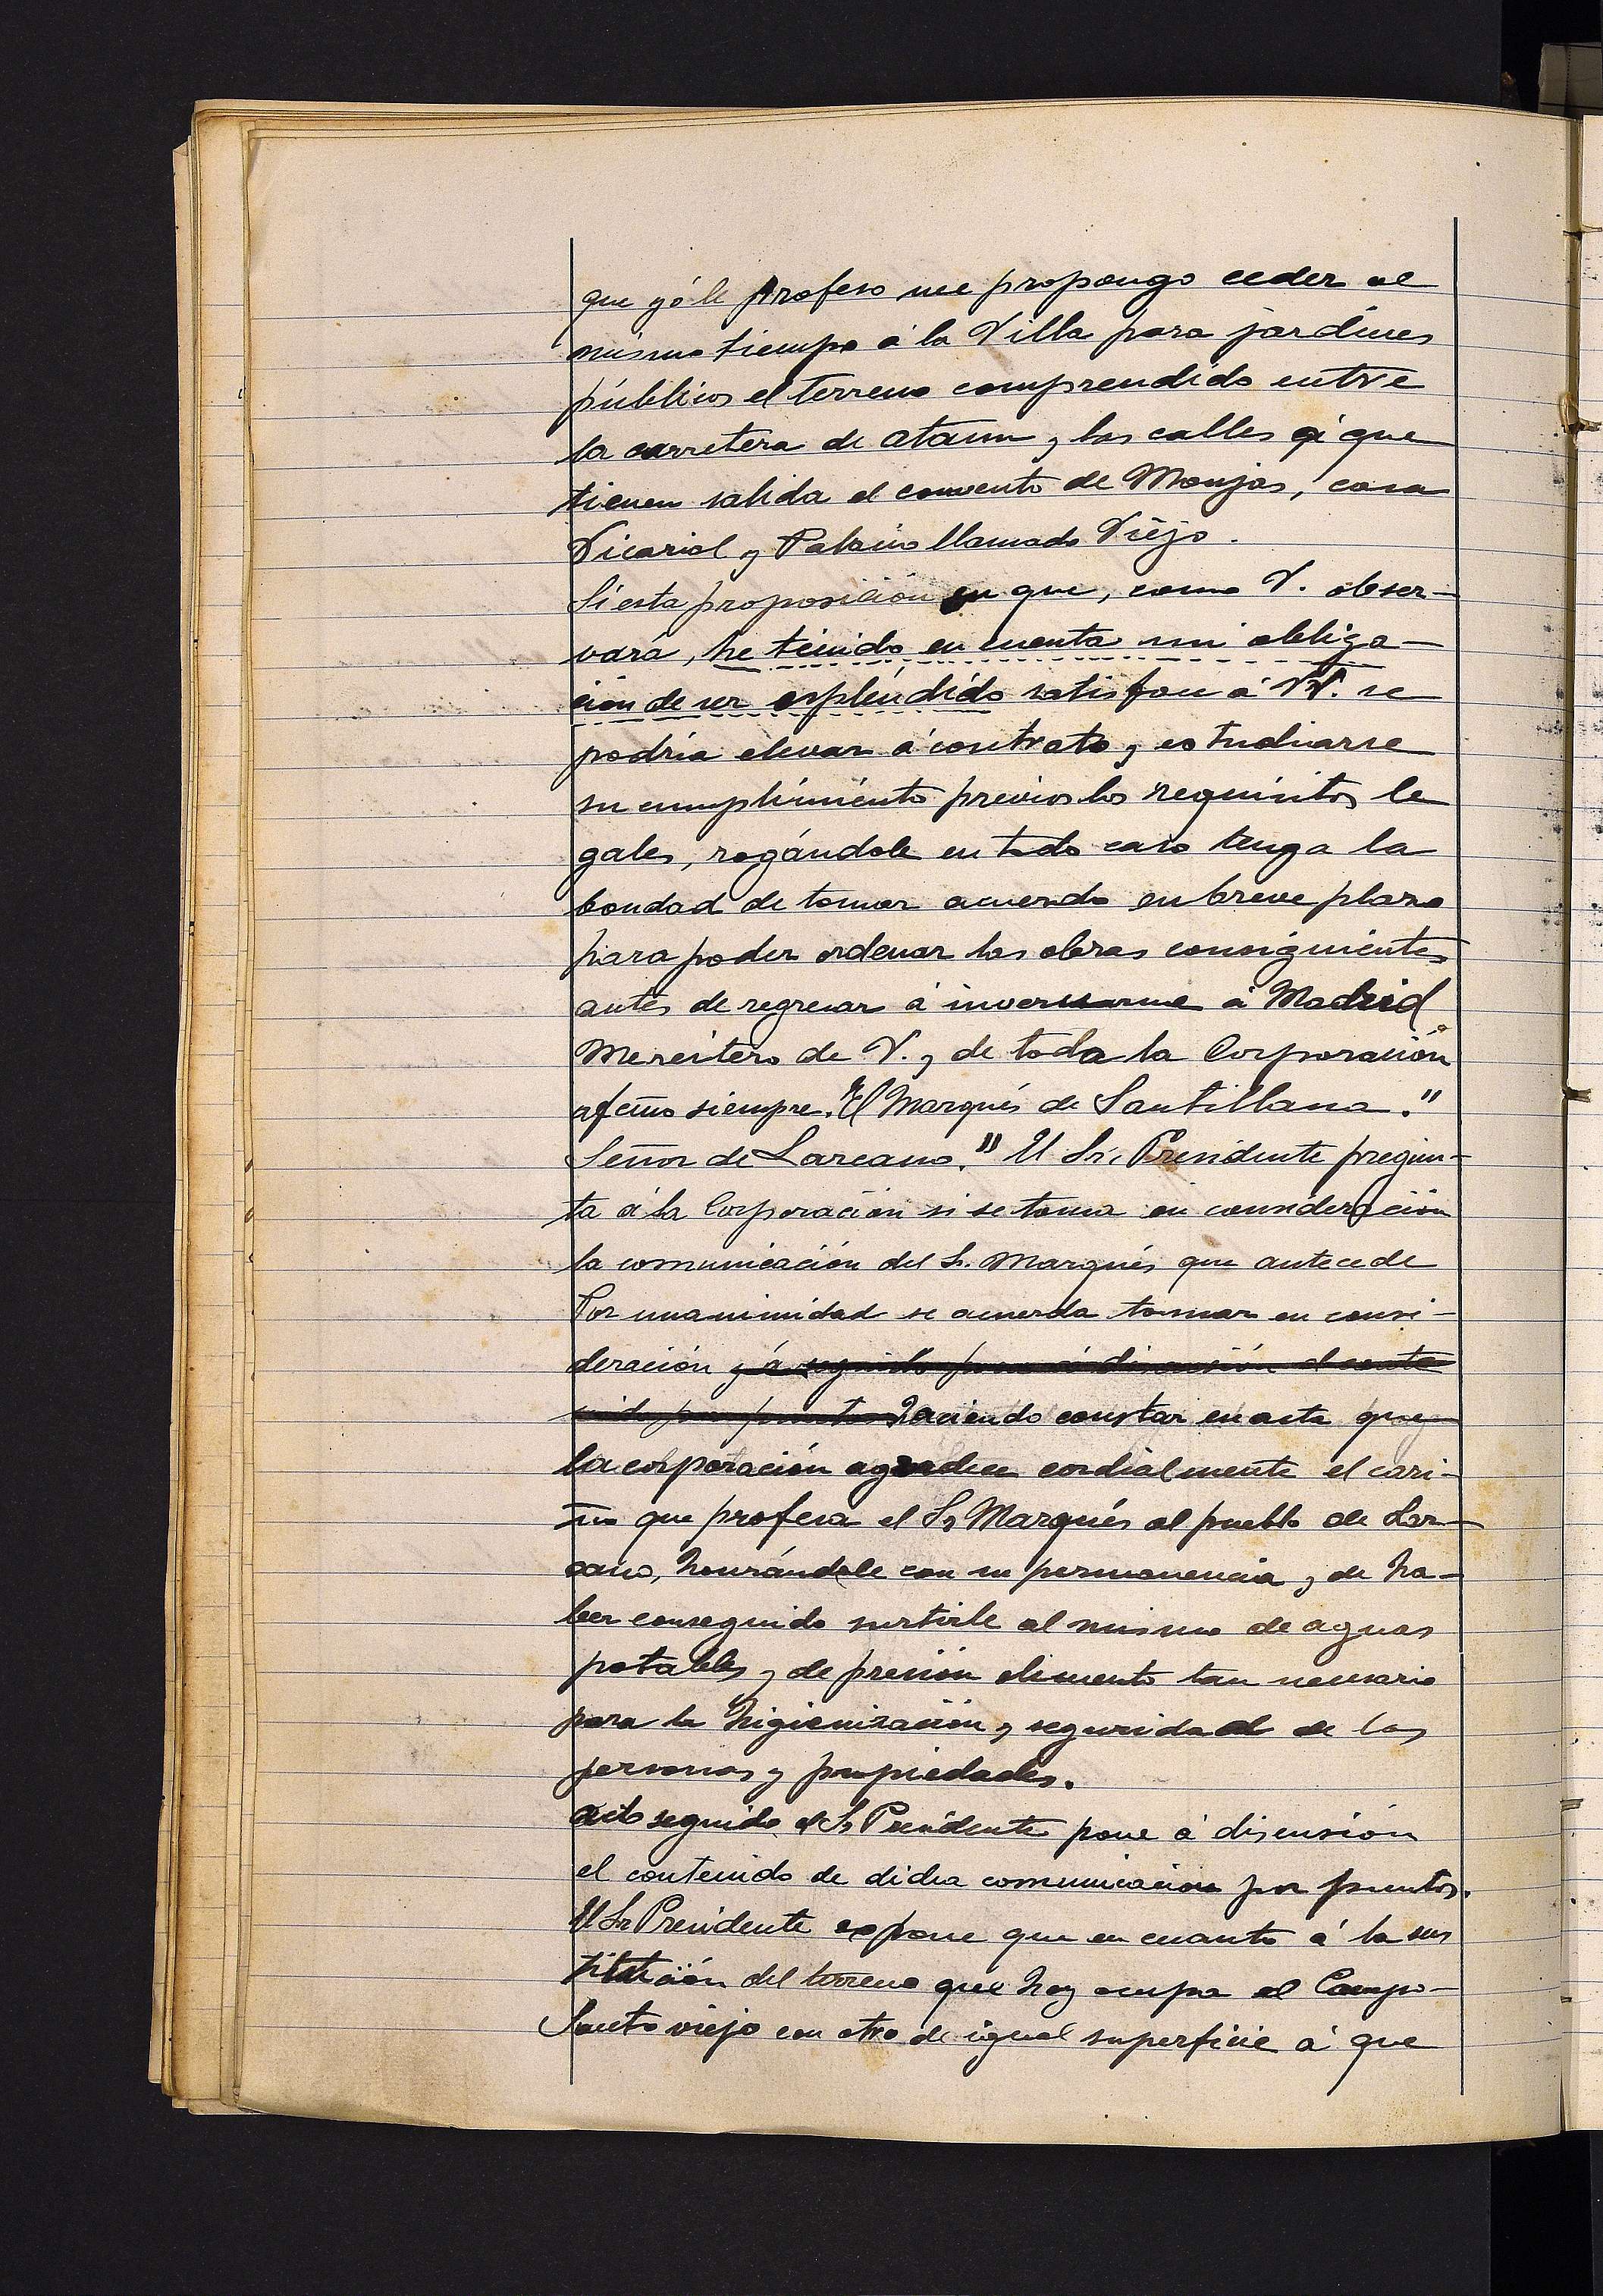 que yó le profeso me propongo ceder al
mismo tiempo á la Villa para jardines
públicos el terreno comprendido entre
la carretera de Ataun y las calles á que
tienen salida el convento de Monjas, casa
Vicarial y Palacio llamado Viejo.
Si esta proposición en que, como V. obser-
vará, he tenido en cuenta mi obliga-
cion de ser espléndido satisface á VV. se
podria elevar á contrato y estudiarse
su cumplimiento previos los requisitos le
gales, rogándole en todo caso tenga la
bondad de tomar acuerdo en breve plazo
para poder ordenar las obras consiguientes
antes de regresar á invernarme á Madrid
Me reitero de V. y de toda la Corporación
afcmo siempre. El Marqués de Santillana."
Señor de Lazcano." El Sr. Presidente pregun-
ta á la Corporación si se toma en consideración
la comunicación del Sr. Marqués que antecede
Por unanimidad se acuerda tomar en consi-
deración y á seguido pone á discusión el conte
nido por puntos haciendo constar en acta que
la corporación agradece cordialmente el cari-
ño que profesa el Sr Marqués al pueblo de Laz-
cano, honrándole con su permanencia y de ha-
ber conseguido surtirle al mismo de aguas
potables y de presión elemento tan necesario
para la higienización y seguridad de las
personas y propiedades.
Acto seguido el Sr Presidente pone á discusión
el contenido de dicha comunicacion por puntos.
El Sr Presidente expone que en cuanto á la sus
titución del terreno que hoy ocupa el Campo-
Santo viejo con otro de igual superficie á que